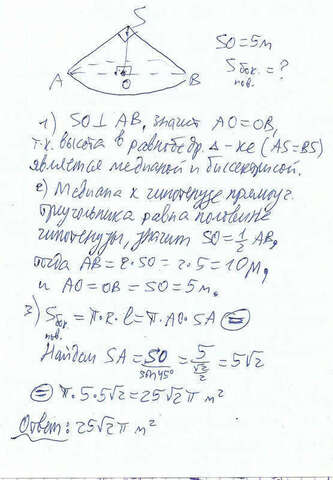 S
A
O
B
SO = 5м
Sбок. пов. = ?
1) SO ⊥ AB, значит AO = OB,
т.к. высота в равнобедр. Δ-ке (AS = BS)
является медианой и биссектрисой.
2) Медиана к гипотенузе прямоуг.
треугольника равна половине
гипотенузы, значит SO = 1/2 AB,
тогда AB = 2·SO = 2·5 = 10 м,
и AO = OB = SO = 5 м.
3) Sбок. пов. = π·R·l = π·AO·SA =
Найдем SA = SO/sin45° = 5/(√2/2) = 5√2
= π·5·5√2 = 25√2 π м²
Ответ: 25√2 π м²